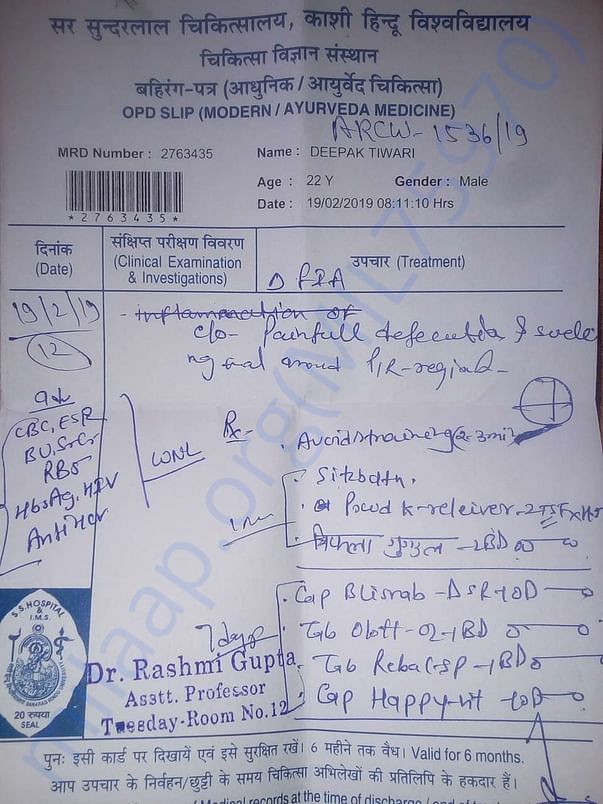 सर सुन्दरलाल चिकित्सालय, काशी हिन्दू विश्वविद्यालय
चिकित्सा विज्ञान संस्थान
बहिरंग-पत्र (आधुनिक / आयुर्वेद चिकित्सा)
OPD SLIP (MODERN / AYURVEDA MEDICINE)
ARCW-1536/19
MRD Number : 2763435
Name : DEEPAK TIWARI
Age : 22 Y Gender : Male
*2763435*
Date : 19/02/2019 08:11:10 Hrs
दिनांक
(Date)
संक्षिप्त परीक्षण विवरण
(Clinical Examination
& Investigations)
उपचार (Treatment)
19/2/19
12
- inflammation of
c/o- Painfull defecation & swell
ng around P/R-region-
CBC, ESR
BU, SrCr
RBS
HbsAg, HIV
Anti Hcv
WNL
Rx-
. Avoid straining (2-3 min)
. Sitzbath.
. Powd K-receiver-2TSF x HS
. त्रिफला गुगुल -2BD
. Cap Blisrab-DSR-1OD
. Tab Oboft-02-1BD
. Tab Rebal-SP-1BD
. Cap Happy-vit 1OD
7days
Dr. Rashmi Gupta
Asstt. Professor
Tuesday-Room No.12
S.S.HOSPITAL
&
I.M.S.
20 रुपया
SEAL
पुनः इसी कार्ड पर दिखायें एवं इसे सुरक्षित रखें। 6 महीने तक वैध। Valid for 6 months.
आप उपचार के निर्वहन/छुट्टी के समय चिकित्सा अभिलेखों की प्रतिलिपि के हकदार हैं।
Medical records at the time of discharge